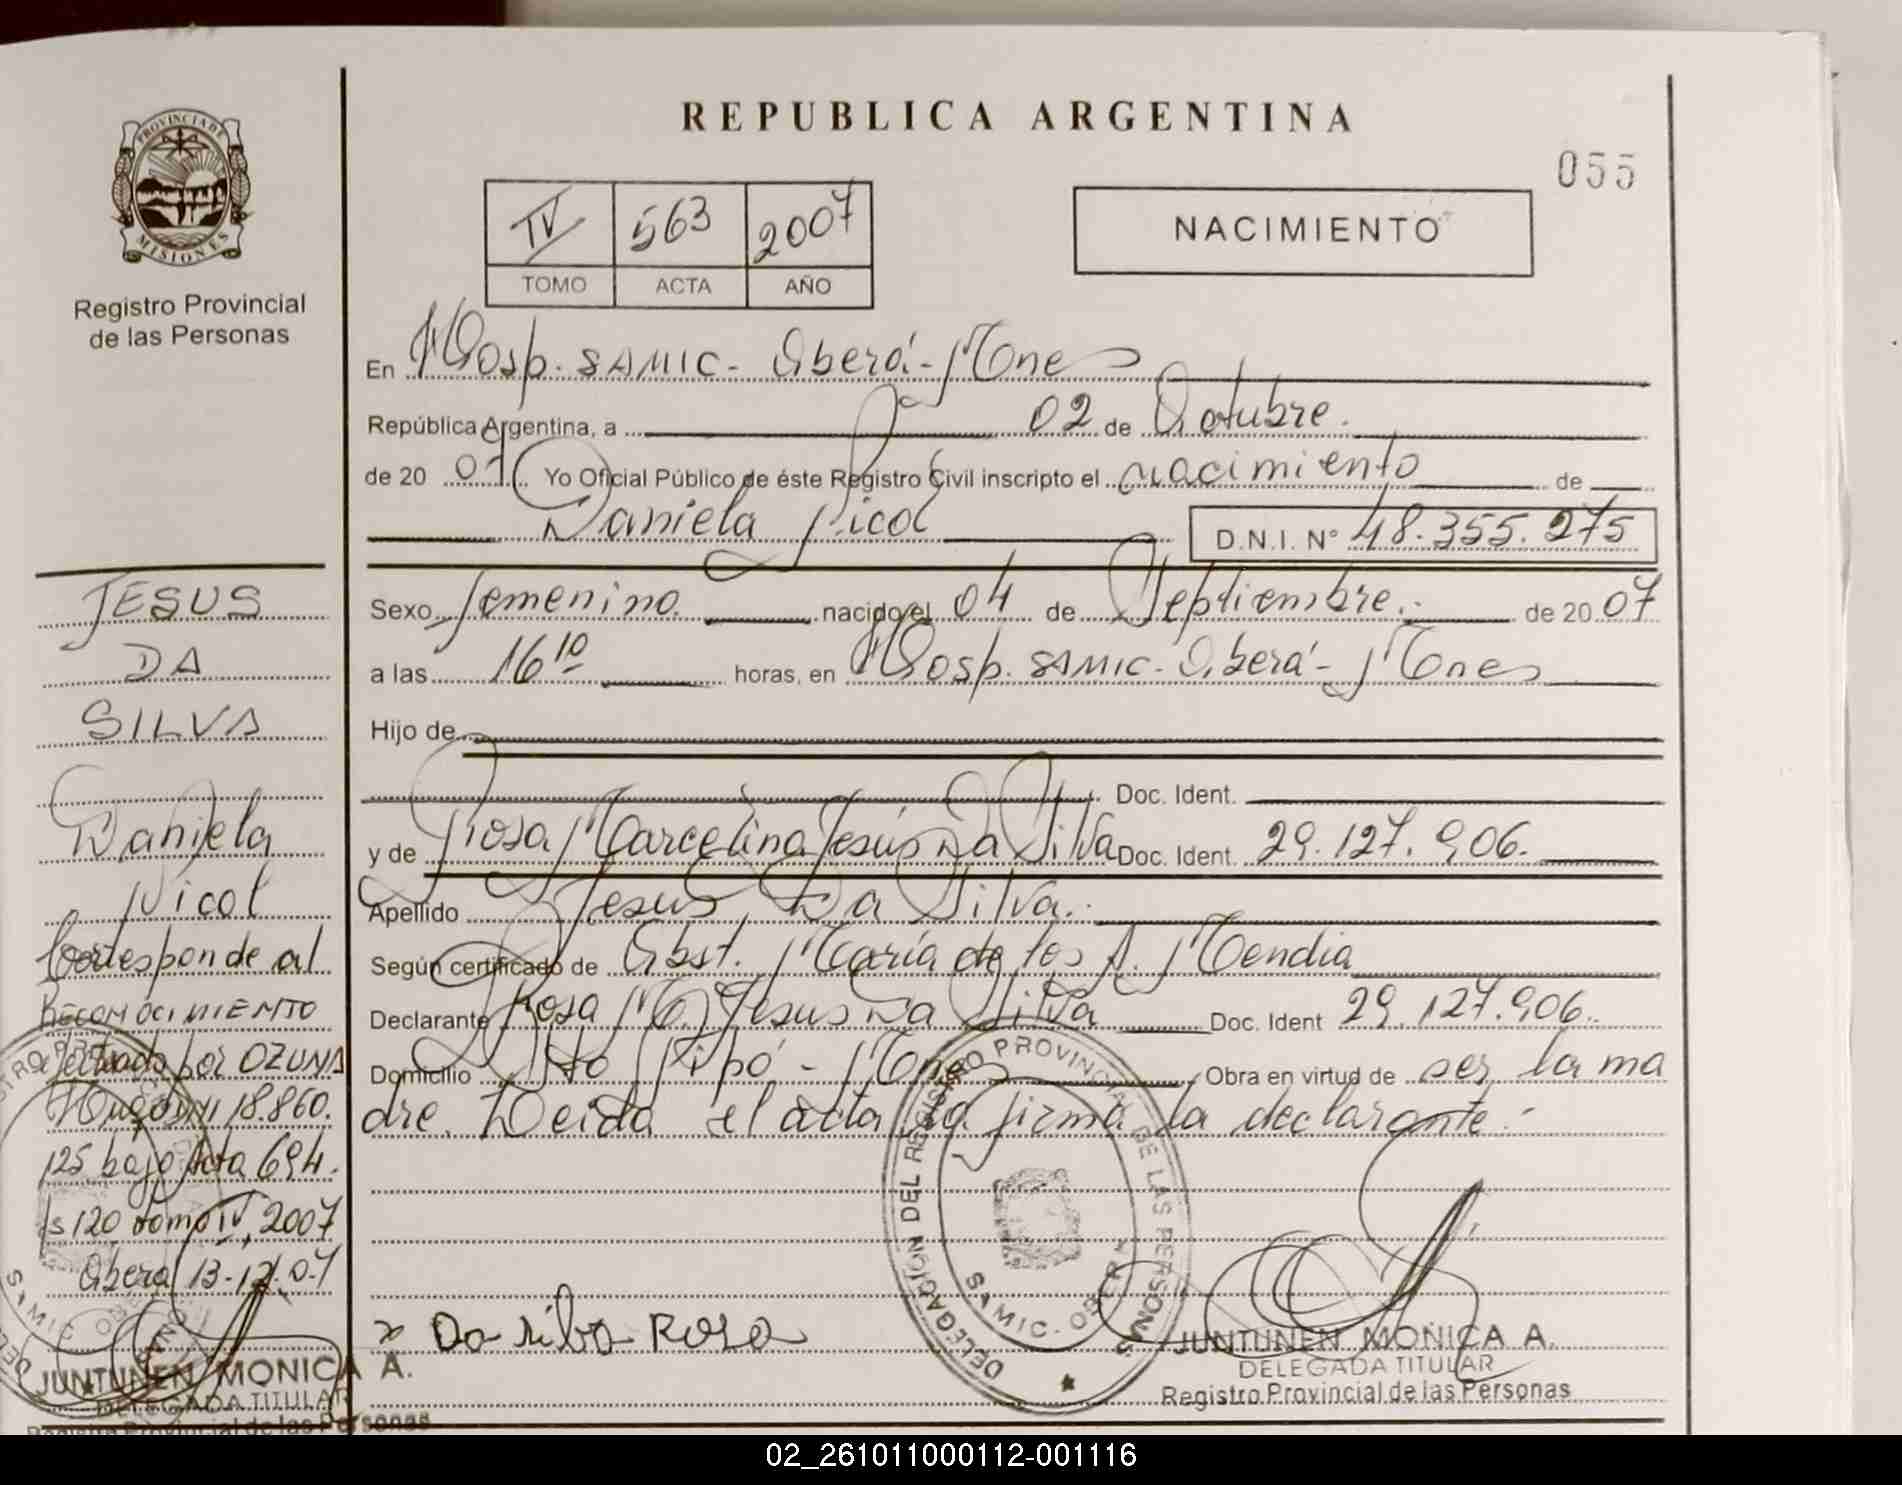 PROVINCIA DE
MISIONES
Registro Provincial
de las Personas
JESUS
DA
SILVA
Daniela
Nicol
Corresponde al
RECONOCIMIENTO
efectuado por OZUNA
Hugo DNI 18.860.
125 bajo Acta 694.
fs 120 tomo IV, 2007
Oberá 13-12-07
JUNTUNEN MONICA A.
DELEGADA TITULAR
Registro Provincial de las Personas
REPUBLICA ARGENTINA
055
IV 563 2007
TOMO ACTA AÑO
NACIMIENTO
En Hosp. SAMIC - Oberá - Mones
República Argentina, a 02 de Octubre.
de 20 07 Yo Oficial Público de éste Registro Civil inscripto el nacimiento de
Daniela Nicol D.N.I. N° 48.355.275
Sexo femenino. nacido el 04 de Septiembre. de 20 07
a las 16 10 horas, en Hosp. SAMIC - Oberá - Mones
Hijo de
Doc. Ident.
y de Rosa Marcelina Jesús Da Silva Doc. Ident. 29.127.906.
Apellido Jesus Da Silva.
Según certificado de Obst. María de los A. Mendia
Declarante Rosa M. Jesus Da Silva Doc. Ident 29.127.906.
Domicilio Pto Pipó - Mones Obra en virtud de ser la ma
dre. Leida el acta la firma la declarante.-
x Da silva Rosa
DELEGACIÓN DEL REGISTRO PROVINCIAL DE LAS PERSONAS
SAMIC - OBERA
JUNTUNEN MONICA A.
DELEGADA TITULAR
Registro Provincial de las Personas
02_261011000112-001116